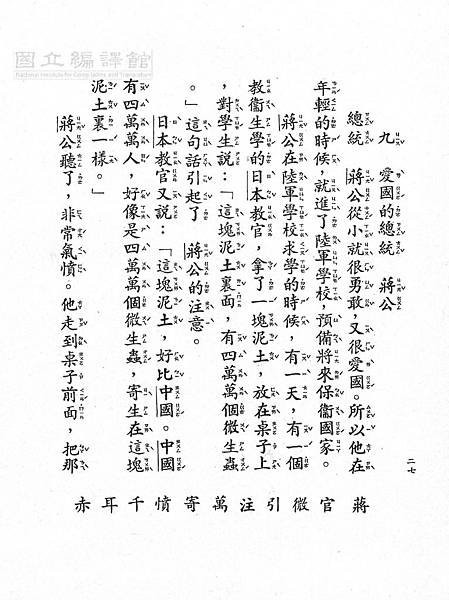 國立編譯館
National Institute for Compilation and Translation
九　愛國的總統　蔣公
總統　蔣公從小就很勇敢，又很愛國。所以他在
年輕的時候，就進了陸軍學校，預備將來保衞國家。
蔣公在陸軍學校求學的時候，有一天，有一個
教衞生學的日本教官，拿了一塊泥土，放在桌子上
，對學生說：「這塊泥土裏面，有四萬萬個微生蟲
。」這句話引起了　蔣公的注意。
日本教官又說：「這塊泥土，好比中國。中國
有四萬萬人，好像是四萬萬個微生蟲，寄生在這塊
泥土裏一樣。」
蔣公聽了，非常氣憤。他走到桌子前面，把那
二七
蔣官微引注萬寄憤千耳赤